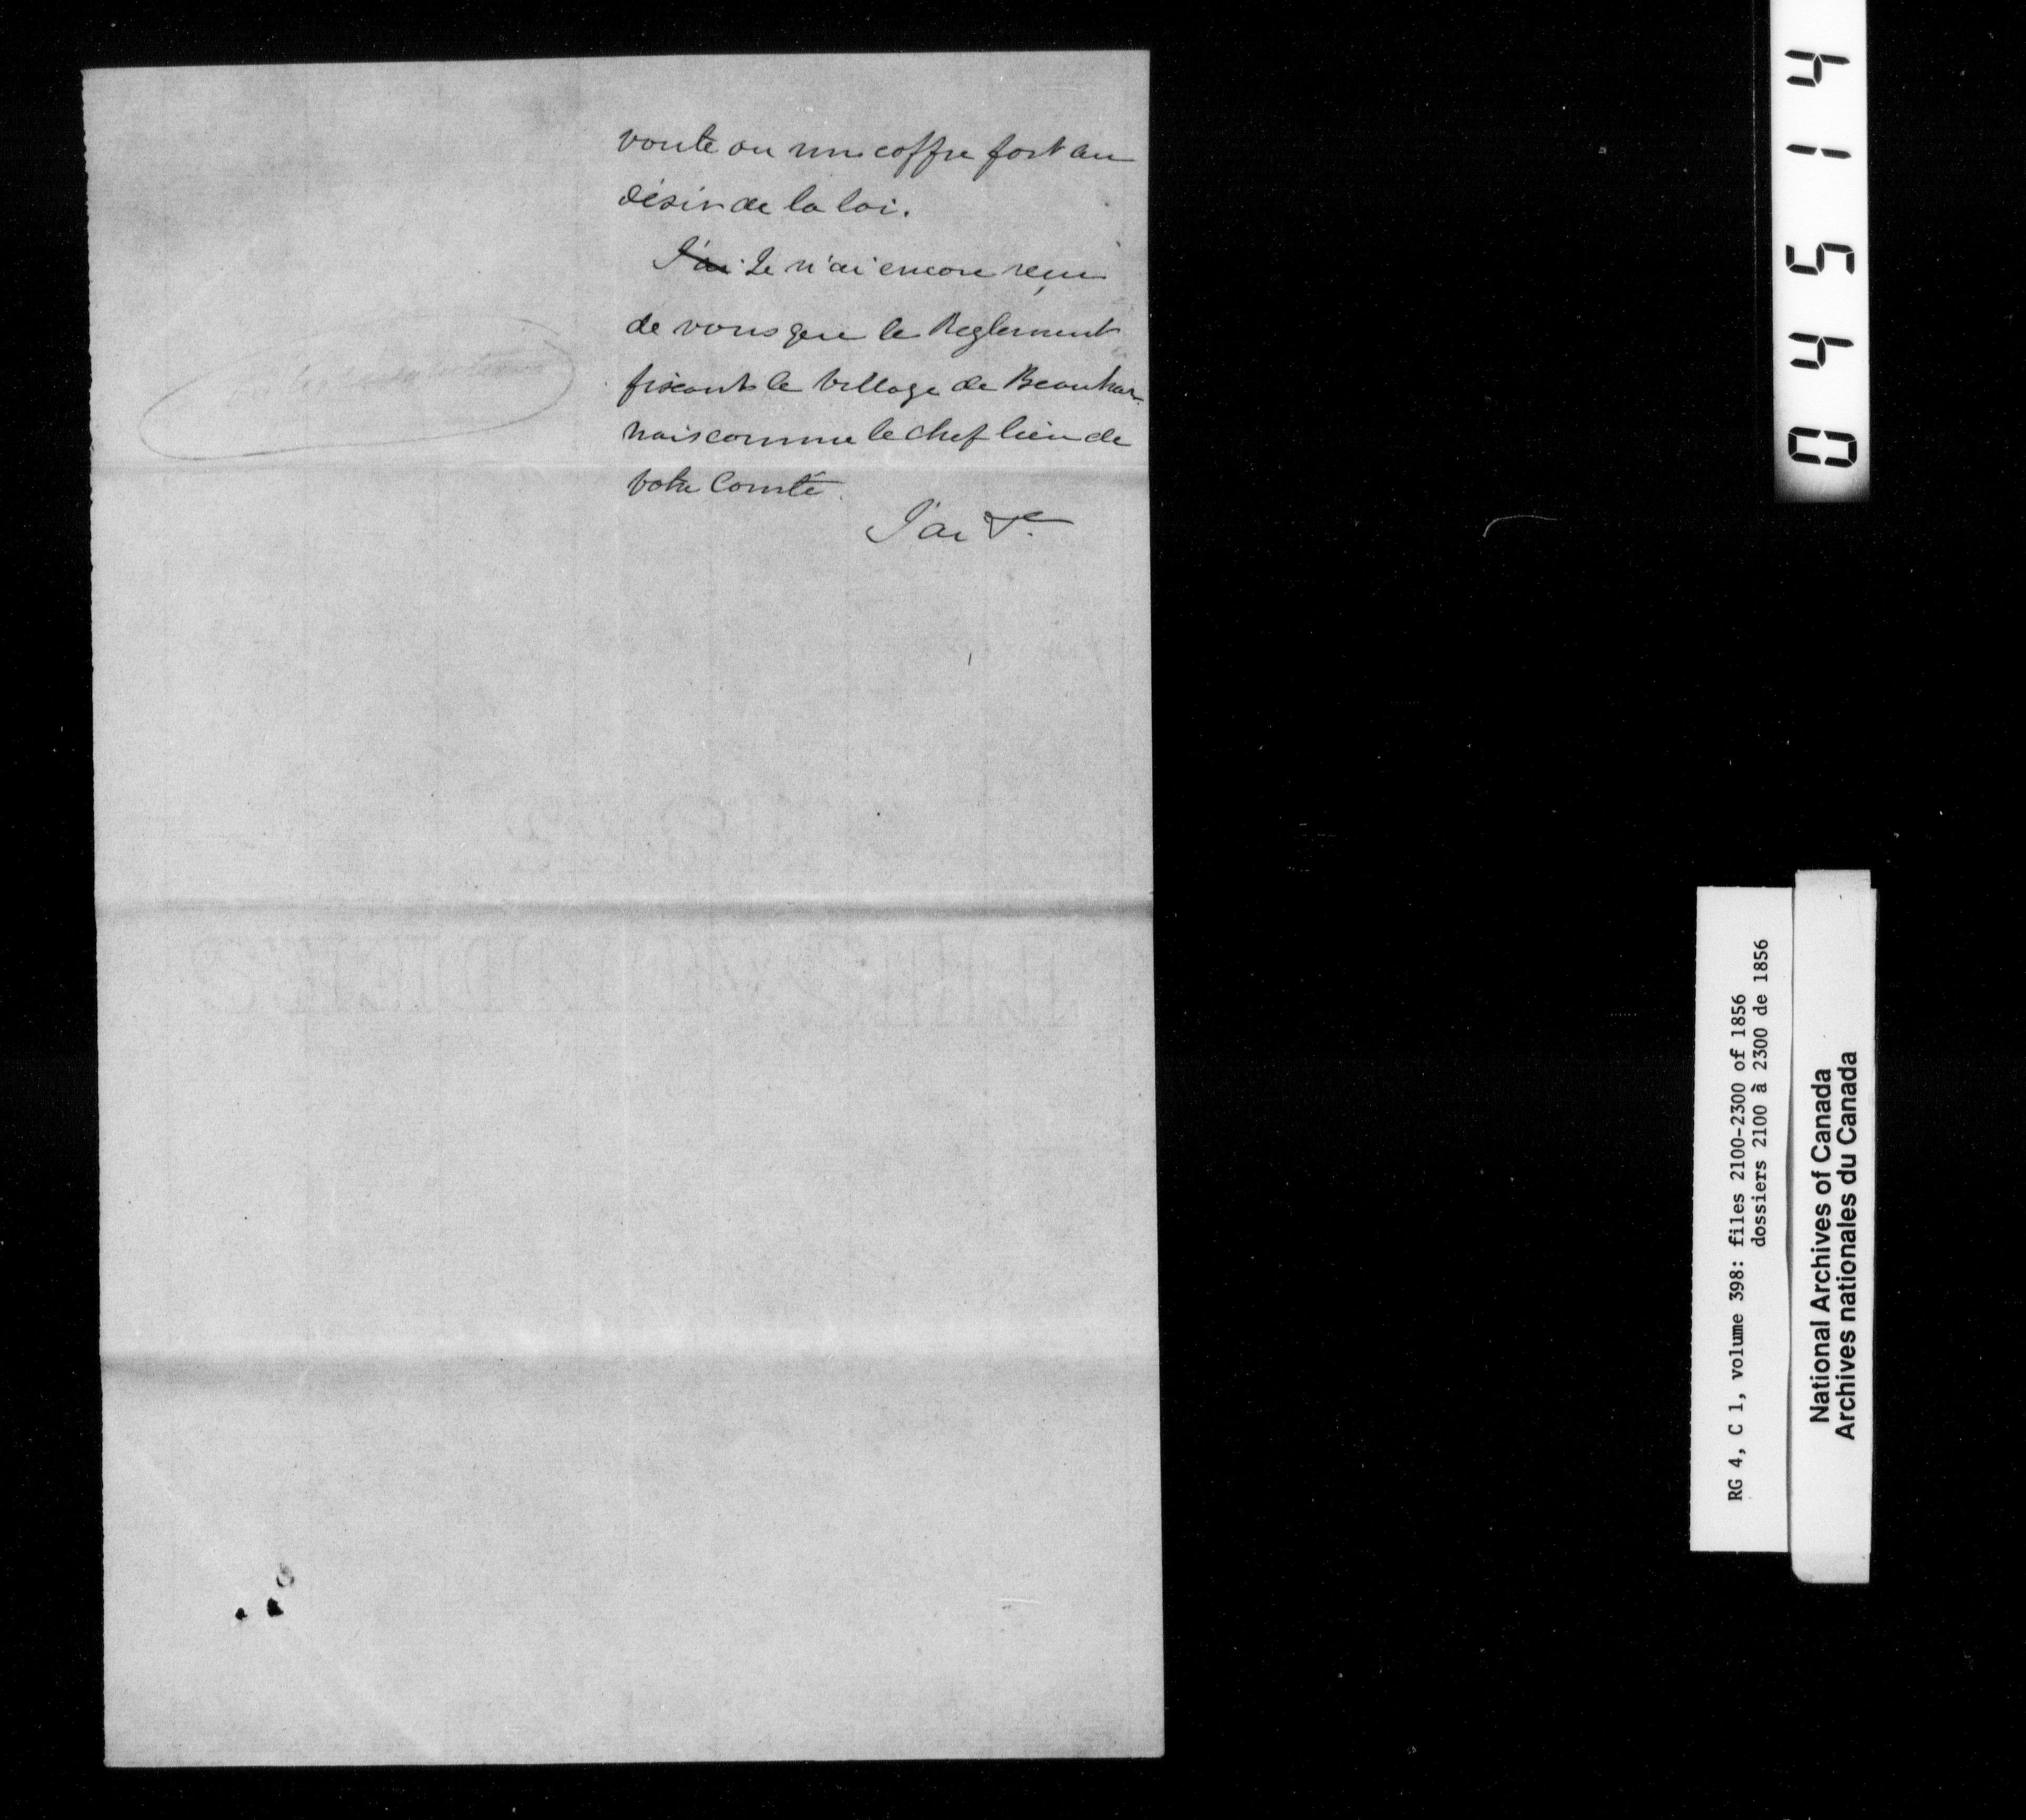 voute ou un coffre fort au
désir de la loi.
J'ai Je n'ai encore reçu
de vous que le Reglement
fixant le village de Beauhar-
nais comme le chef lieu de
votre Comté.
J'ai &c.
04514
RG 4, C 1, volume 398: files 2100-2300 of 1856
dossiers 2100 à 2300 de 1856
National Archives of Canada
Archives nationales du Canada